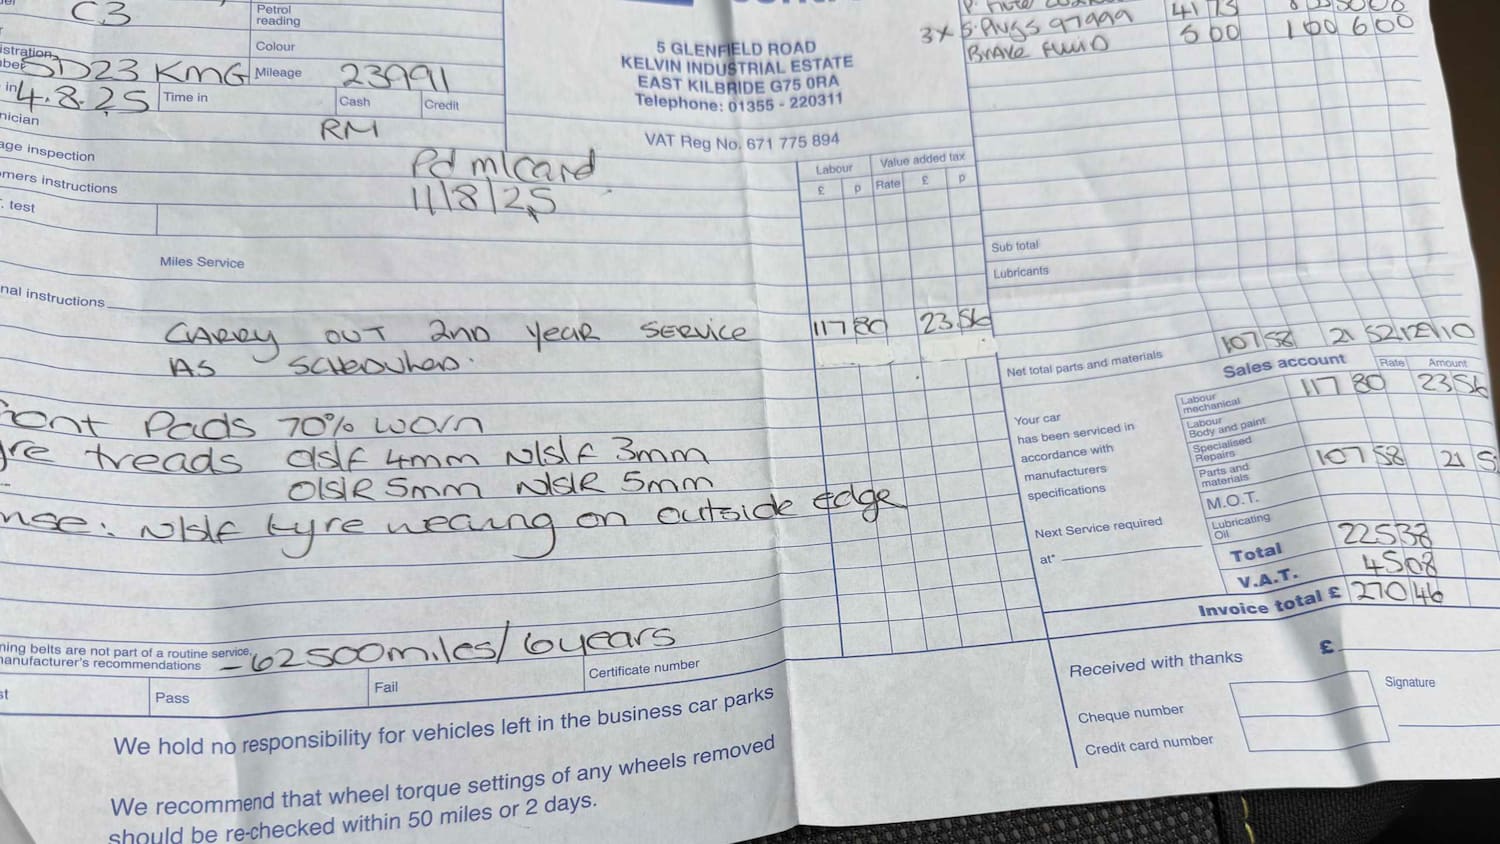 C3
Petrol
reading
Colour
SD23 KMG
Mileage
23991
4.8.25
Time in
Cash
Credit
RM
Pd m/card
11/8/25
Miles Service
CARRY OUT 2ND YEAR SERVICE
AS SCHEDULED.
117 80 23 56
Pads 70% worn
treads O/S/F 4mm N/S/F 3mm
O/S/R 5mm N/S/R 5mm
N/S/F tyre wearing on outside edge
-62500miles/6years
Pass
Fail
Certificate number
We hold no responsibility for vehicles left in the business car parks
We recommend that wheel torque settings of any wheels removed
should be re-checked within 50 miles or 2 days.
5 GLENFIELD ROAD
KELVIN INDUSTRIAL ESTATE
EAST KILBRIDE G75 0RA
Telephone: 01355 - 220311
VAT Reg No. 671 775 894
Labour
Value added tax
£ p Rate £ p
3x S.Plugs 97999 41 75
BRAKE FLUID 5 00 1 00 6 00
Sub total
Lubricants
Net total parts and materials
107 58 21 52 129 10
Sales account
Rate
Amount
Labour
mechanical
117 80 23 56
Labour
Body and paint
Specialised
Repairs
Parts and
materials
107 58 21 5
M.O.T.
Lubricating
Oil
Total
225 38
V.A.T.
45 08
Invoice total £
270 46
Your car
has been serviced in
accordance with
manufacturers
specifications
Next Service required
at*
Received with thanks
£
Signature
Cheque number
Credit card number